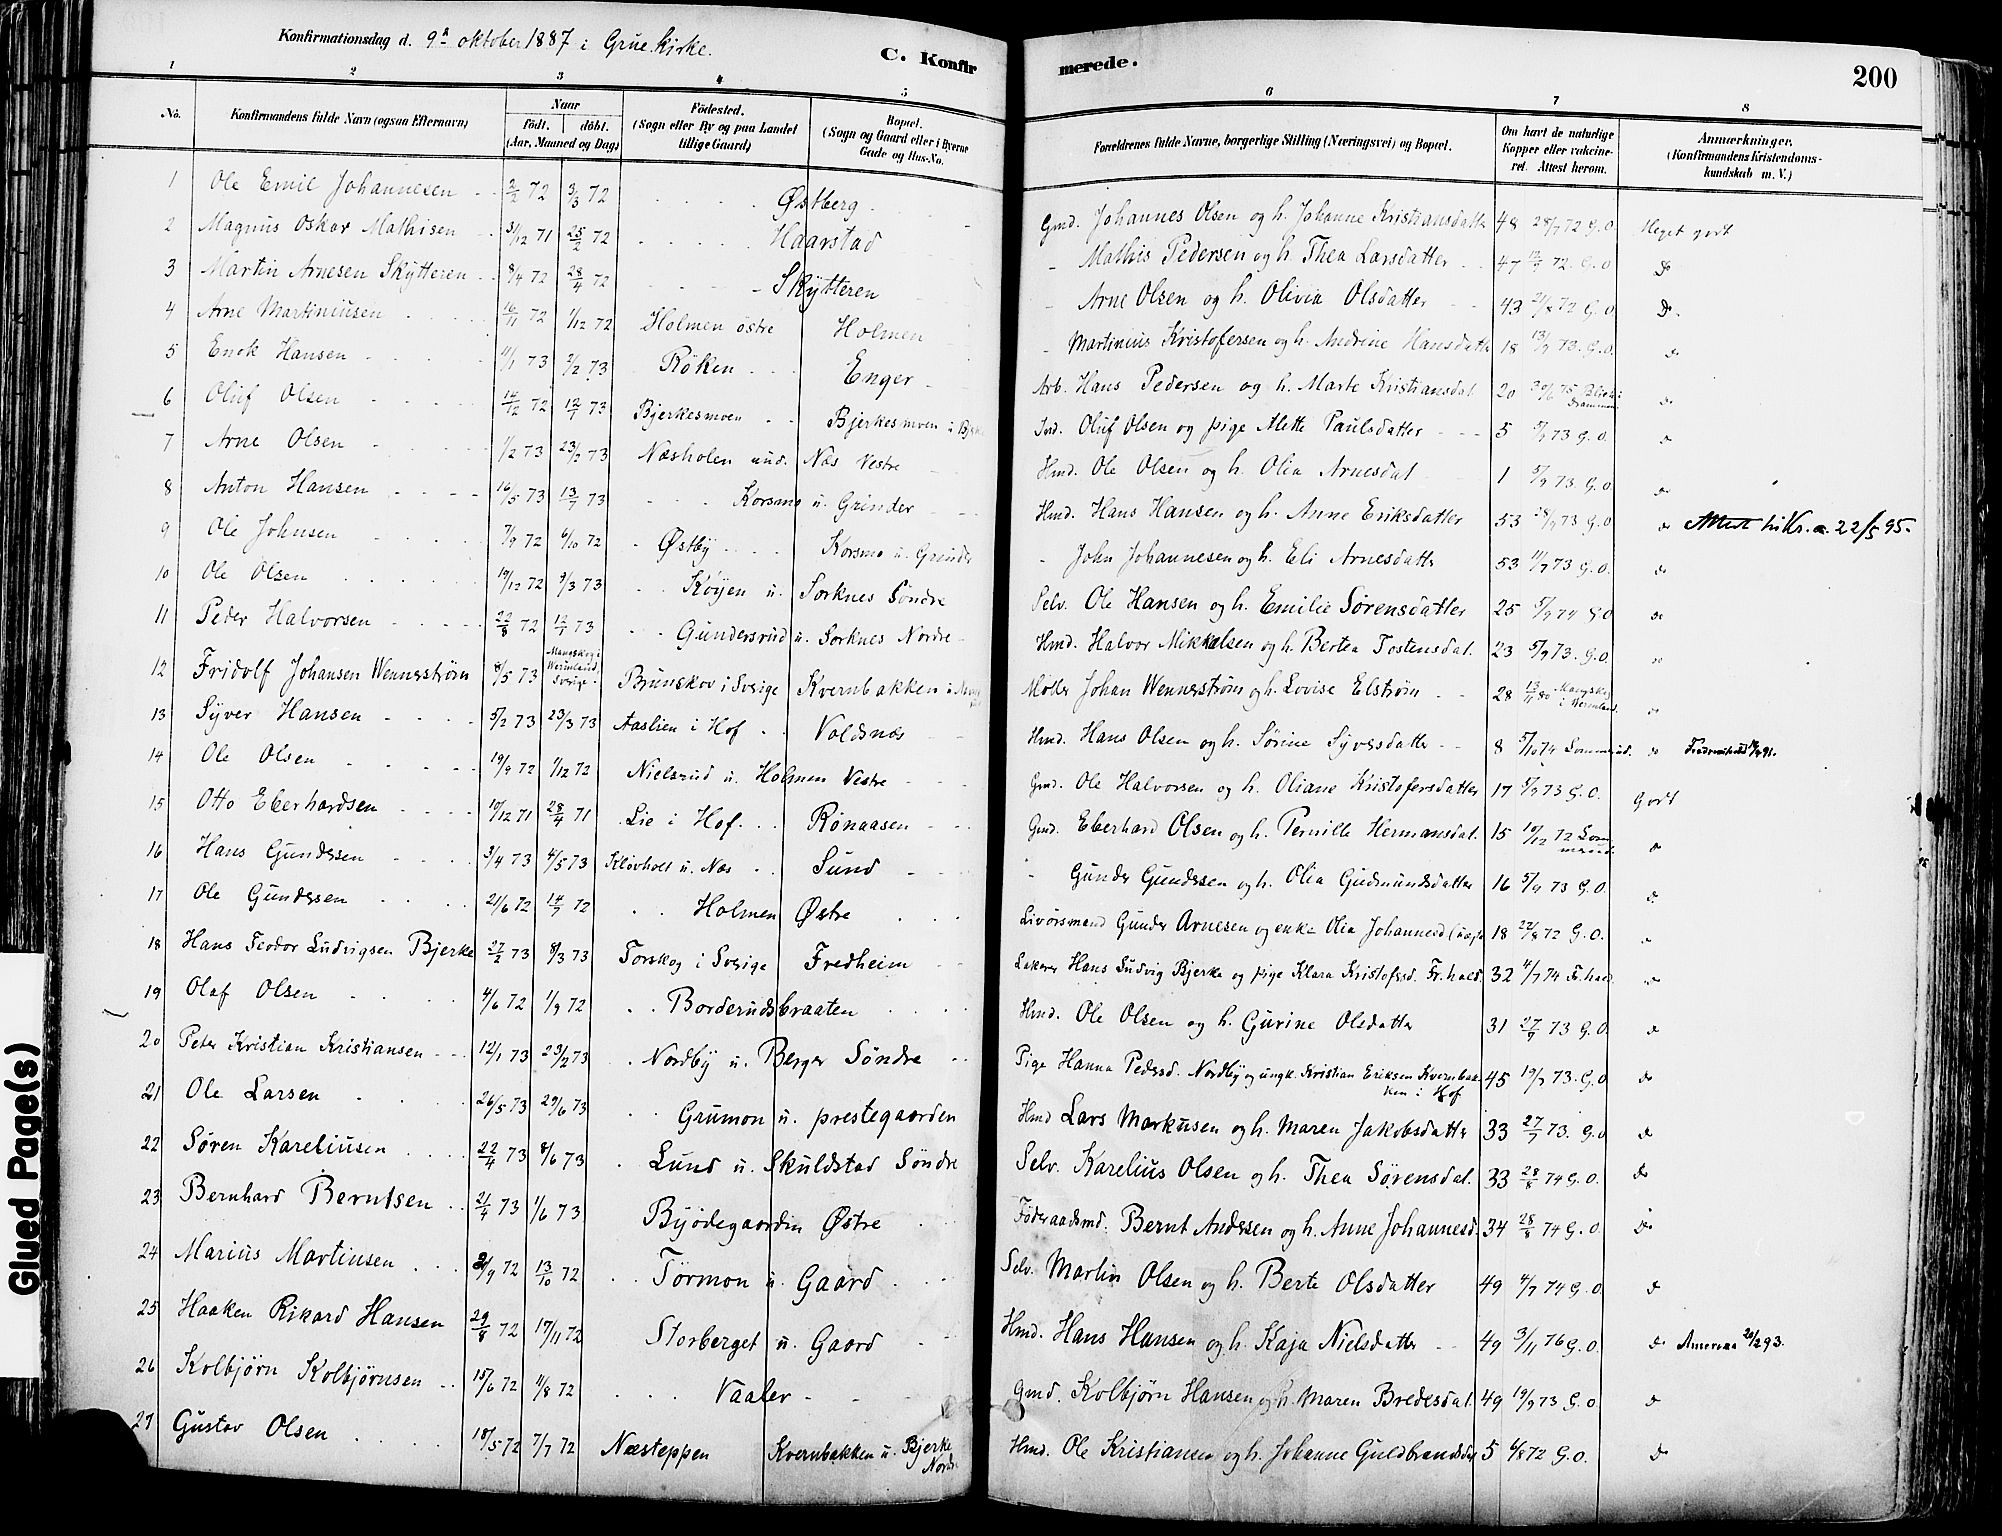 Konfirmationsdag d. 9de oktober 1887 i Grue kirke.
C. Konfirmerede.
200
1 2 3 4 5 6 7 8
No.
Konfirmandens fulde Navn (ogsaa Efternavn)
Naar
födt. döbt.
(Aar, Maaned og Dag)
Födested.
(Sogn eller By og paa Landet tillige Gaard)
Bopæl.
(Sogn og Gaard eller i Byerne Gade og Hus-No.
Forældrenes fulde Navne, borgerlige Stilling (Næringsvei) og Bopæl.
Om havt de naturlige Kopper eller vakcineret. Attest herom.
Anmærkninger.
(Konfirmandens Kristendomskundskab m. V.)
1 Ole Emil Johannesen 2/2 72 3/3 72 Østberg Gmd. Johannes Olsen og h. Johanne Kristiansdatter 48 28/7 72 G.O. Meget godt
2 Magnus Oskar Mathisen 31/12 71 25/2 72 Haarstad - Mathis Pedersen og h. Thea Larsdatter 47 72. G.O. Do
3 Martin Arnesen Skytteren 8/4 72 28/4 72 Skytteren - Arne Olsen og h. Olivia Olsdatter 43 72 G.O. Do
4 Arne Martiniusen 16/11 72 1/12 72 Holmen östre Holmen - Martinius Kristofersen og h. Andrine Hansdatter 18 13/9 73. G.O. Do
5 Enok Hansen 11/1 73 2/2 73 Röken Enger Arb. Hans Pedersen og h. Marte Kristiansdat 20 30/6 75 Drammen Do
6 Oluf Olsen 14/12 72 12/7 73 Bjerkesmoen Bjerkesmoen u. Bjerke Ind. Oluf Olsen og pige Mette Paulsdatter 5 73 G.O. Do
7 Arne Olsen 1/2 73 23/2 73 Næsholen und. Næs Vestre Hmd. Ole Olsen og h. Olia Arnesdat 1 5/9 73 G.O. Do
8 Anton Hansen 16/5 73 13/7 73 Korsmo u. Grinder Hmd. Hans Hansen og h. Anne Eriksdatter 53 28/9 73 G.O Do Attest til Kr.a 22/5 95.
9 Ole Johnsen 7/9 72 6/10 72 Østby Korsmo u. Grinder - John Johannesen og h. Eli Arnesdatter 53 11/7 73 G.O. Do
10 Ole Olsen 19/12 72 9/3 73 Köyen u. Sorknes Söndre Selv. Ole Hansen og h. Emilie Sørensdatter 25 5/9 74 G.O Do
11 Peter Halvorsen 22/8 72 12/7 73 Gundersrud u. Sorknes Nordre Hmd. Halvor Mikkelsen og h. Bertea Tostensdat. 23 5/9 73. G.O. Do
12 Fridolf Johansen Wennerström 8/5 73 Mangskog i Wermland Sverige. Brunskov i Sverige Kvernbakken Möller Johan Wennerström og h. Lovise Elström 28 Mangskog i Wermland. Do
13 Syver Hansen 5/2 73 23/3 73 Aaslien i Hof Voldsnæs Hmd. Hans Olsen og h. Sörine Syversdatter 8 5/10 74 Sommerud. Do Fredrikshald 91.
14 Ole Olsen 19/9 72 1/12 72 Nielsrud u. Holmen Vestre Gmd. Ole Halvorsen og h. Oliane Kristofersdatter 17 5/9 73 G.O. Godt
15 Otto Eberhardsen 10/12 71 28/4 71 Lie i Hof Rönaasen Gmd. Eberhard Olsen og h. Pernille Hermansdat. 15 10/12 72 Sommerud. Do
16 Hans Gundersen 3/4 73 4/5 73 Klövholt u. Næs Sund - Gunder Gundersen og h. Olia Gudmundsdatter 16 5/9 73 G.O. Do
17 Ole Gundersen 21/6 72 14/7 72 Holmen Østre Livörsmand Gunder Arnesen og enke Olia Johannesd 18 22/8 72 G.O. Do
18 Hans Teodor Ludvigsen Bjerke 27/2 73 8/3 73 Torskog i Sverige Fredheim Lakerer Hans Ludvig Bjerke og pige Klara Kristofersd. Fr.hald. 32 4/7 74 F.hald Do
19 Olaf Olsen 4/6 72 1/9 72 Borderudsbraaten Hmd. Ole Olsen og h. Gurine Olsdatter 31 27/9 73 G.O. Do
20 Peter Kristian Kristiansen 12/1 73 23/2 73 Nordby u. Berger Söndre Pige Hanna Pedersd. Nordby og ungk. Kristian Eriksen Kvernbakken i Hof 45 19/7 73. G.O Do
21 Ole Larsen 26/5 73 29/6 73 Grumon u. prestegaarden Hmd Lars Markusen og h. Maren Jakobsdatter 33 27/7 73. G.O Do
22 Søren Kareliusen 22/4 73 8/6 73 Lund u. Skulstad Söndre Selv. Karelius Olsen og h. Thea Sørensdat. 33 28/8 74 G.O. Do
23 Bernhard Berntsen 21/4 73 1/6 73 Byödegaarden Østre Föderaadsmd. Bernt Andersen og h. Anne Johannesd. 34 28/8 74 G.O. Do
24 Marius Martinsen 21/9 72 13/10 72 Törmon u. Gaard Selv. Martin Olsen og h. Berte Olsdatter 49 4/7 74 G.O. Do
25 Haaken Rikard Hansen 29/8 72 17/11 72 Storberget u. Gaard Hmd. Hans Hansen og h. Kaja Nielsdatter 49 3/11 76 G.O. Do Amerika 20/2 93.
26 Kolbjörn Kolbjörnsen 15/6 72 11/8 72 Vaaler Gmd. Kolbjörn Hansen og h. Maren Bredesdat. 49 19/9 73 G.O. Do
27 Gustav Olsen 18/5 72 7/7 72 Næsteppen Kvernbakken u. Bjerke Nordre Hmd. Ole Kristiansen og h. Johanne Guldbrandsdat 5 6/8 72 G.O. Do
Glued Page(s)